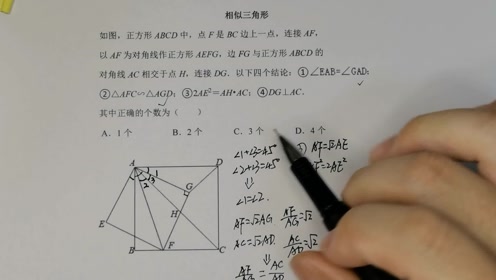 相似三角形
如图，正方形 ABCD 中，点 F 是 BC 边上一点，连接 AF，
以 AF 为对角线作正方形 AEFG，边 FG 与正方形 ABCD 的
对角线 AC 相交于点 H，连接 DG．以下四个结论：①∠EAB=∠GAD；
②△AFC∽△AGD；③2AE²=AH•AC；④DG⊥AC．
其中正确的个数为（ ）
A．1 个 B．2 个 C．3 个 D．4 个
∠1+∠3=45°
∠2+∠3=45°
⇓
∠1=∠2.
AF=√2AG AF/AG=√2
AC=√2AD. AC/AD=√2
⇓
AF/AG=AC/AD
AF=√2AE
=2AE²
A
D
1
3
2
G
H
E
B
F
C